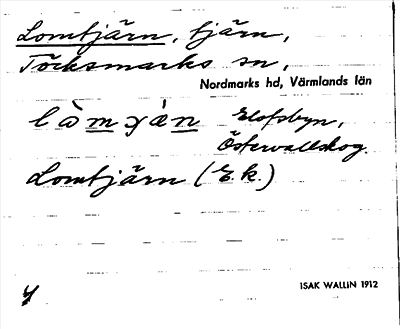 Lomtjärn, tjärn,
Töcksmarks sn,
Nordmarks hd, Värmlands län
Elofsbyn,
Östervallskog.
Lomtjärn (E.k.)
ISAK WALLIN 1912